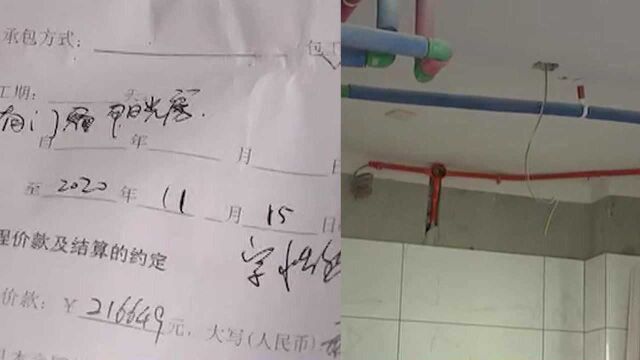 承包方式： 包
工期： 天
阳光房.
自 年 月 日
至 2020 年 11 月 15 日
程价款及结算的约定
价款：￥ 216649 元，大写(人民币)